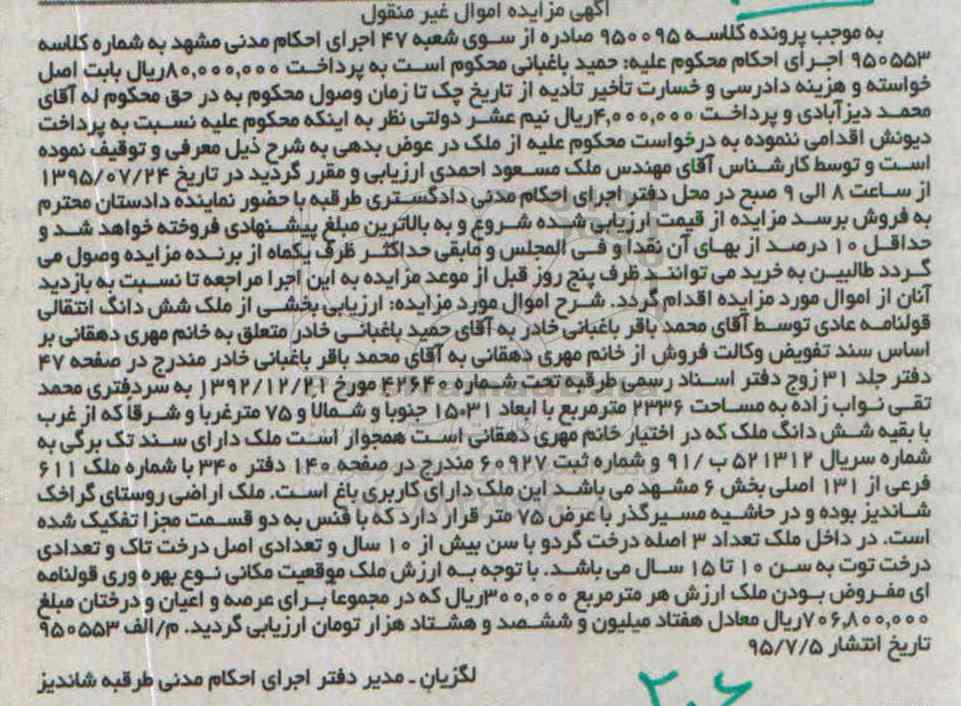 آگهی مزایده اموال غیر منقول
به موجب پرونده کلاسه ۹۵۰۰۹۵ صادره از سوی شعبه ۴۷ اجرای احکام مدنی مشهد به شماره کلاسه
۹۵۰۵۵۳ اجرای احکام محکوم علیه: حمید باغبانی محکوم است به پرداخت ۸۰,۰۰۰,۰۰۰ریال بابت اصل
خواسته و هزینه دادرسی و خسارت تأخیر تأدیه از تاریخ چک تا زمان وصول محکوم به در حق محکوم له آقای
محمد دیزآبادی و پرداخت ۴,۰۰۰,۰۰۰ریال نیم عشر دولتی نظر به اینکه محکوم علیه نسبت به پرداخت
دیونش اقدامی ننموده به درخواست محکوم علیه از ملک در عوض بدهی به شرح ذیل معرفی و توقیف نموده
است و توسط کارشناس آقای مهندس ملک مسعود احمدی ارزیابی و مقرر گردید در تاریخ ۱۳۹۵/۰۷/۲۴
از ساعت ۸ الی ۹ صبح در محل دفتر اجرای احکام مدنی دادگستری طرقبه با حضور نماینده دادستان محترم
به فروش برسد مزایده از قیمت ارزیابی شده شروع و به بالاترین مبلغ پیشنهادی فروخته خواهد شد و
حداقل ۱۰ درصد از بهای آن نقدا و فی المجلس و مابقی حداکثر ظرف یکماه از برنده مزایده وصول می
گردد طالبین به خرید می توانند ظرف پنج روز قبل از موعد مزایده به این اجرا مراجعه تا نسبت به بازدید
آنان از اموال مورد مزایده اقدام گردد. شرح اموال مورد مزایده: ارزیابی بخشی از ملک شش دانگ انتقالی
قولنامه عادی توسط آقای محمد باقر باغبانی خادر به آقای حمید باغبانی خادر متعلق به خانم مهری دهقانی بر
اساس سند تفویض وکالت فروش از خانم مهری دهقانی به آقای محمد باقر باغبانی خادر مندرج در صفحه ۴۷
دفتر جلد ۳۱ زوج دفتر اسناد رسمی طرقبه تحت شماره ۴۲۶۴۰ مورخ ۱۳۹۲/۱۲/۲۱ به سردفتری محمد
تقی نواب زاده به مساحت ۲۳۳۶ مترمربع با ابعاد ۱۵۰۳۱ جنوبا و شمالا و ۷۵ مترغربا و شرقا که از غرب
با بقیه شش دانگ ملک که در اختیار خانم مهری دهقانی است همجوار است ملک دارای سند تک برگی به
شماره سریال ۵۲۱۳۱۲ ب /۹۱ و شماره ثبت ۶۰۹۲۷ مندرج در صفحه ۱۴۰ دفتر ۳۴۰ با شماره ملک ۶۱۱
فرعی از ۱۳۱ اصلی بخش ۶ مشهد می باشد این ملک دارای کاربری باغ است. ملک اراضی روستای گراخک
شاندیز بوده و در حاشیه مسیرگذر با عرض ۷۵ متر قرار دارد که با فنس به دو قسمت مجزا تفکیک شده
است. در داخل ملک تعداد ۳ اصله درخت گردو با سن بیش از ۱۰ سال و تعدادی اصل درخت تاک و تعدادی
درخت توت به سن ۱۰ تا ۱۵ سال می باشد. با توجه به ارزش ملک موقعیت مکانی نوع بهره وری قولنامه
ای مفروض بودن ملک ارزش هر مترمربع ۳۰۰,۰۰۰ریال که در مجموعا برای عرصه و اعیان و درختان مبلغ
۷۰۶,۸۰۰,۰۰۰ریال معادل هفتاد میلیون و ششصد و هشتاد هزار تومان ارزیابی گردید. م/الف ۹۵۰۵۵۳
تاریخ انتشار ۹۵/۷/۵
لگزیان ـ مدیر دفتر اجرای احکام مدنی طرقبه شاندیز
۲۰۶